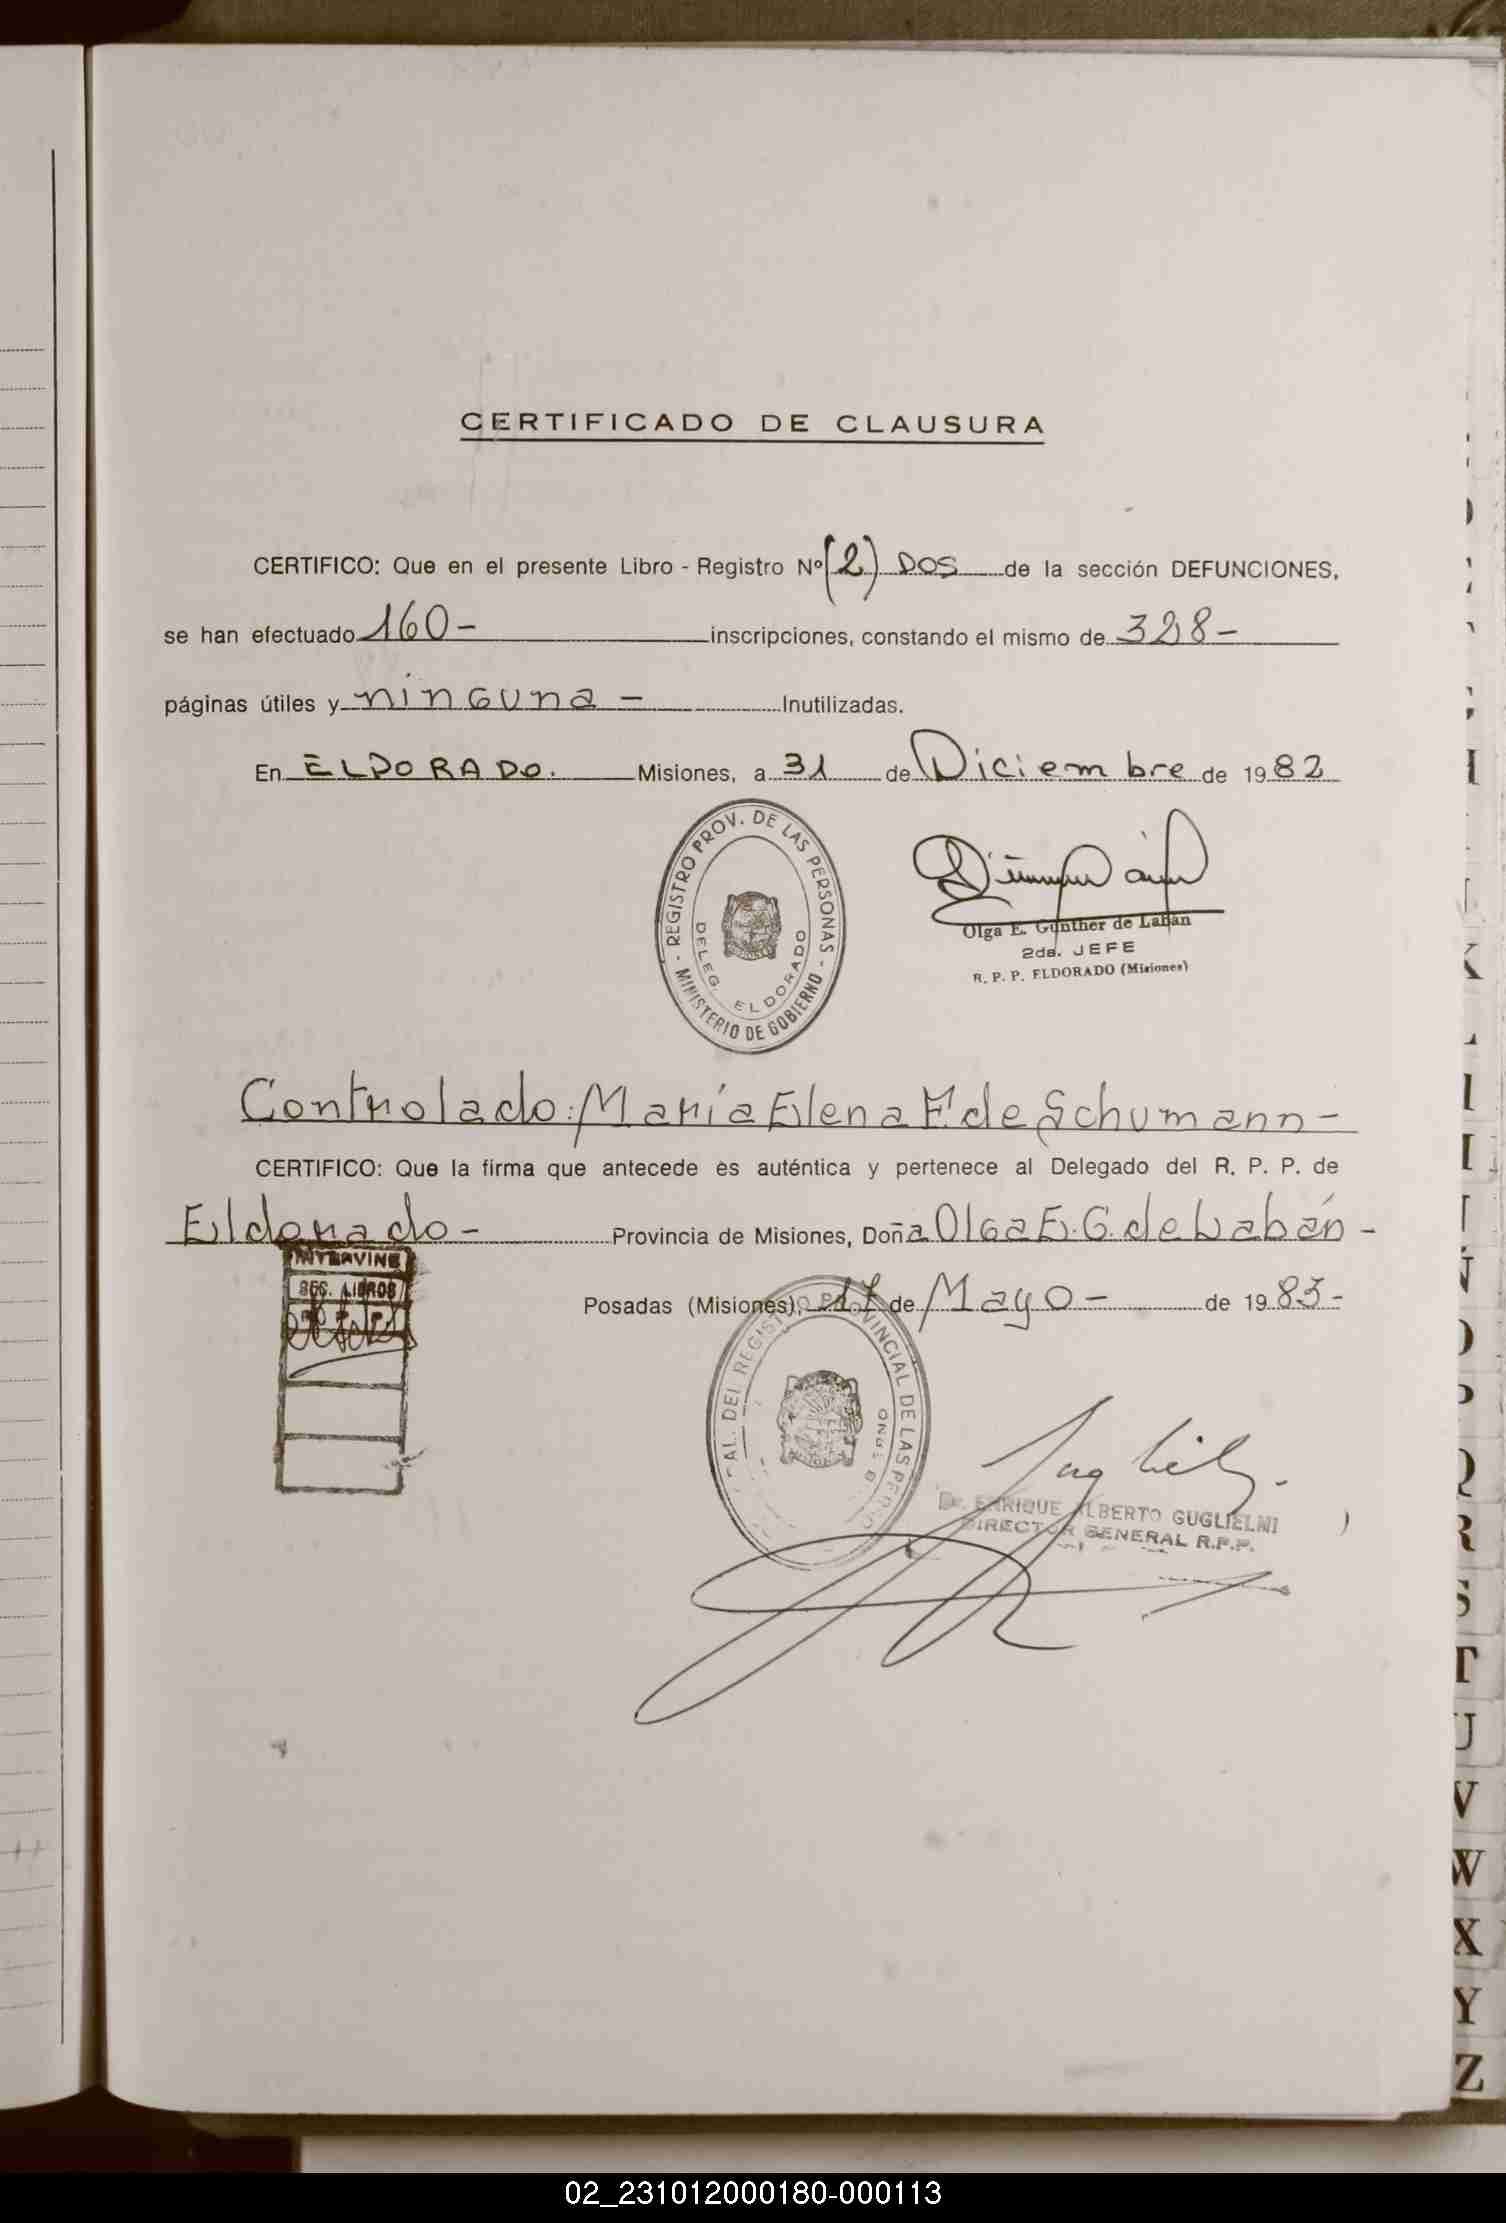 CERTIFICADO DE CLAUSURA
CERTIFICO: Que en el presente Libro - Registro Nº (2) DOS de la sección DEFUNCIONES,
se han efectuado 160- inscripciones, constando el mismo de 328-
páginas útiles y ninguna - Inutilizadas.
En ELDORADO. Misiones, a 31 de Diciembre de 1982
REGISTRO PROV. DE LAS PERSONAS - MINISTERIO DE GOBIERNO -
DELEG. ELDORADO
Olga E. Gunther de Labán
2da. JEFE
R. P. P. ELDORADO (Misiones)
Controlado: María Elena F. de Schumann -
CERTIFICO: Que la firma que antecede es auténtica y pertenece al Delegado del R. P. P. de
Eldorado - Provincia de Misiones, Doña Olga E. G. de Labán -
INTERVINE
SEC. LIBROS
Posadas (Misiones), 17 de Mayo - de 1983-
DEL REGISTRO PROVINCIAL DE LAS
Dr. ENRIQUE ALBERTO GUGLIELMI
DIRECTOR GENERAL R.P.P.
K
Q
R
S
T
U
V
W
X
Y
Z
02_231012000180-000113